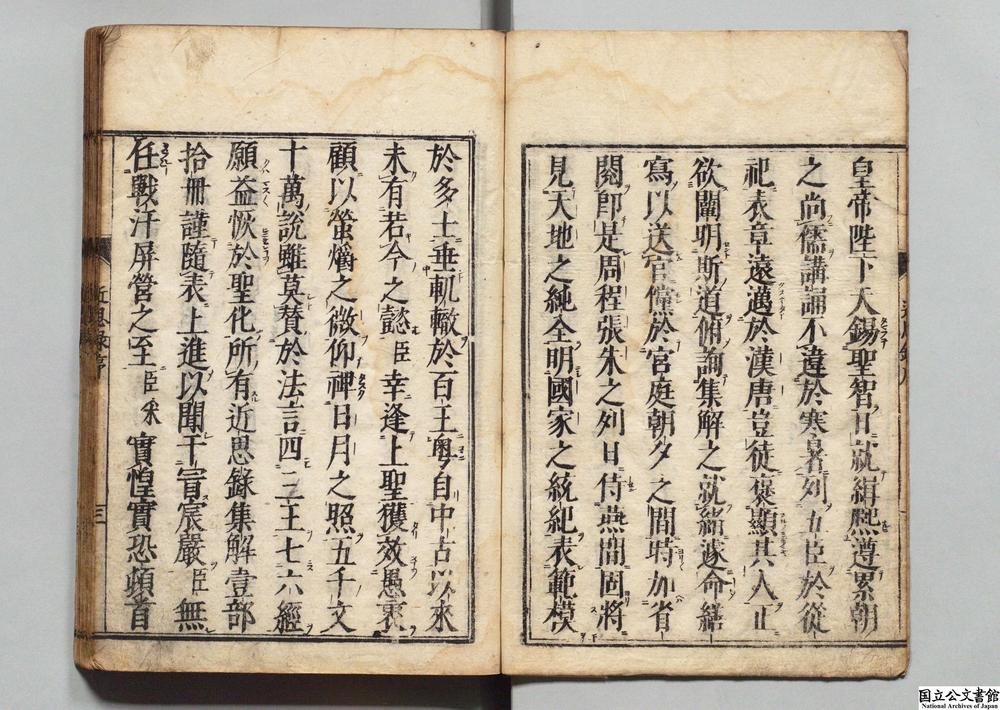 皇帝陛下天錫聖智日就緝熙遵累朝
之尚儒講誦不違於寒暑列五臣於從
祀表章遠邁於漢唐豈徒褒顯其人正
欲闡明斯道俯詢集解之就緒遂命繕
寫以送官儻於宮庭朝夕之間時加省
閱即是周程張朱之列日侍燕閒固將
見天地之純全明國家之統紀表範模
於多士垂軌轍於百王粵自中古以來
未有若今之懿臣幸逢上聖獲效愚衷
顧以螢爝之微仰裨日月之照五千文
十萬說雖莫贊於法言四三王七六經
願益恢於聖化所有近思錄集解壹部
拾冊謹隨表上進以聞干冒宸嚴臣無
任戰汗屏營之至臣采實惶實恐頓首
近思録序
三
国立公文書館
National Archives of Japan